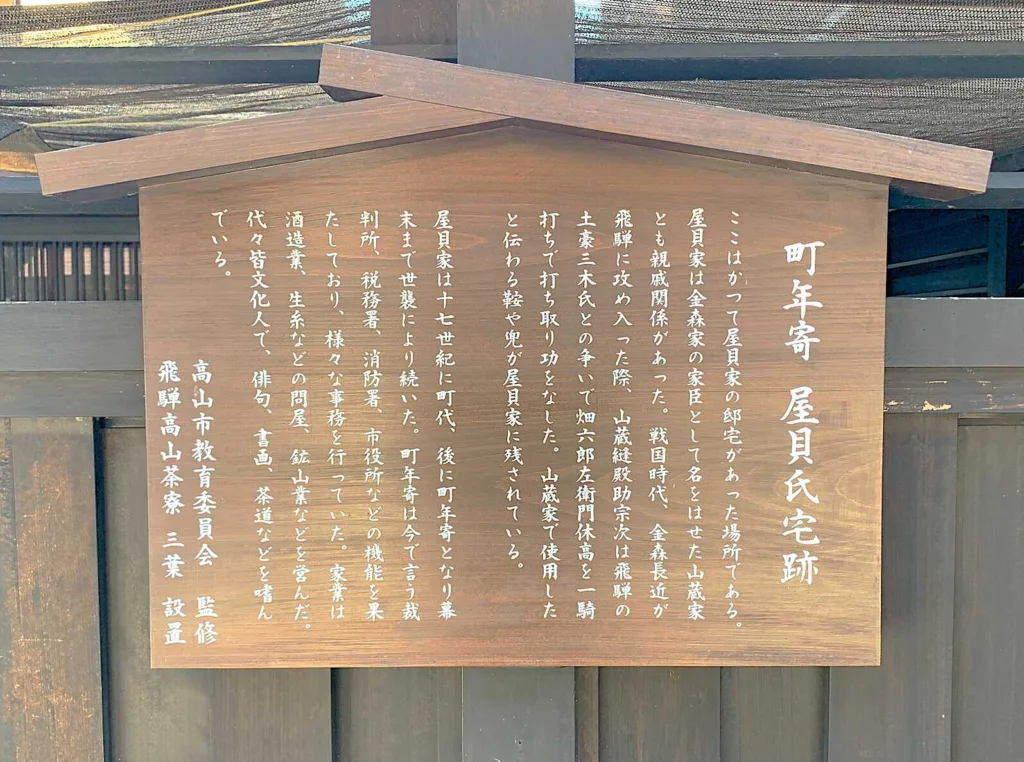 町年寄 屋貝氏宅跡
ここはかつて屋貝家の邸宅があった場所である。
屋貝家は金森家の家臣として名をはせた山蔵家
とも親戚関係があった。戦国時代、金森長近が
飛騨に攻め入った際、山蔵縫殿助宗次は飛騨の
土豪三木氏との争いで畑六郎左衛門休高を一騎
打ちで打ち取り功をなした。山蔵家で使用した
と伝わる鞍や兜が屋貝家に残されている。
屋貝家は十七世紀に町代、後に町年寄となり幕
末まで世襲により続いた。町年寄は今で言う裁
判所、税務署、消防署、市役所などの機能を果
たしており、様々な事務を行っていた。家業は
酒造業、生糸などの問屋、鉱山業などを営んだ。
代々皆文化人で、俳句、書画、茶道などを嗜ん
でいる。
高山市教育委員会 監修
飛騨高山茶寮 三葉 設置